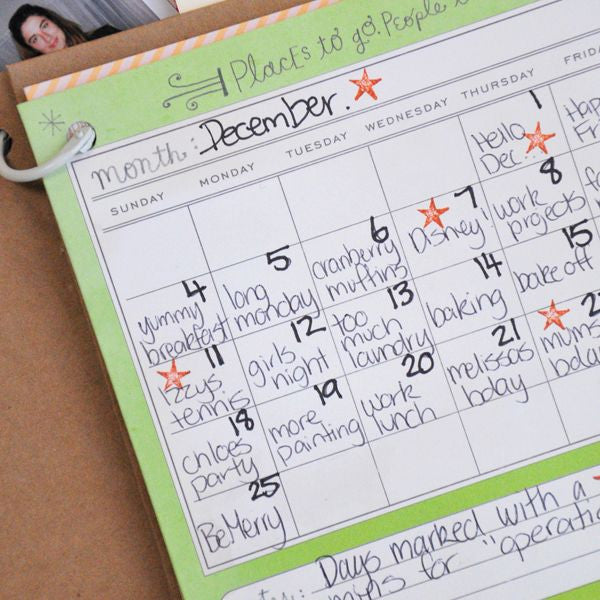 Places to go. People
month: December.
SUNDAY MONDAY TUESDAY WEDNESDAY THURSDAY
1
Hello
Dec..
4
yummy
breakfast
5
long
monday
6
cranberry
muffins
7
Disney!
8
work
projects
11
Izzys
tennis
12
girls
night
13
too
much
laundry
14
baking
15
bake off
18
chloes
party
19
more
painting
20
work
lunch
21
melissas
bday
mums
bday
25
Be Merry
Days marked with a
for "operatio